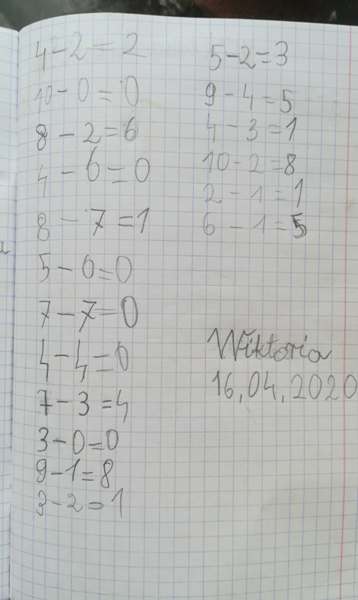 4-2=2
10-0=0
8-2=6
4-6=0
8-7=1
5-0=0
7-7=0
4-4=0
7-3=4
3-0=0
9-1=8
3-2=1
5-2=3
9-4=5
4-3=1
10-2=8
2-1=1
6-1=5
Wiktoria
16,04,2020